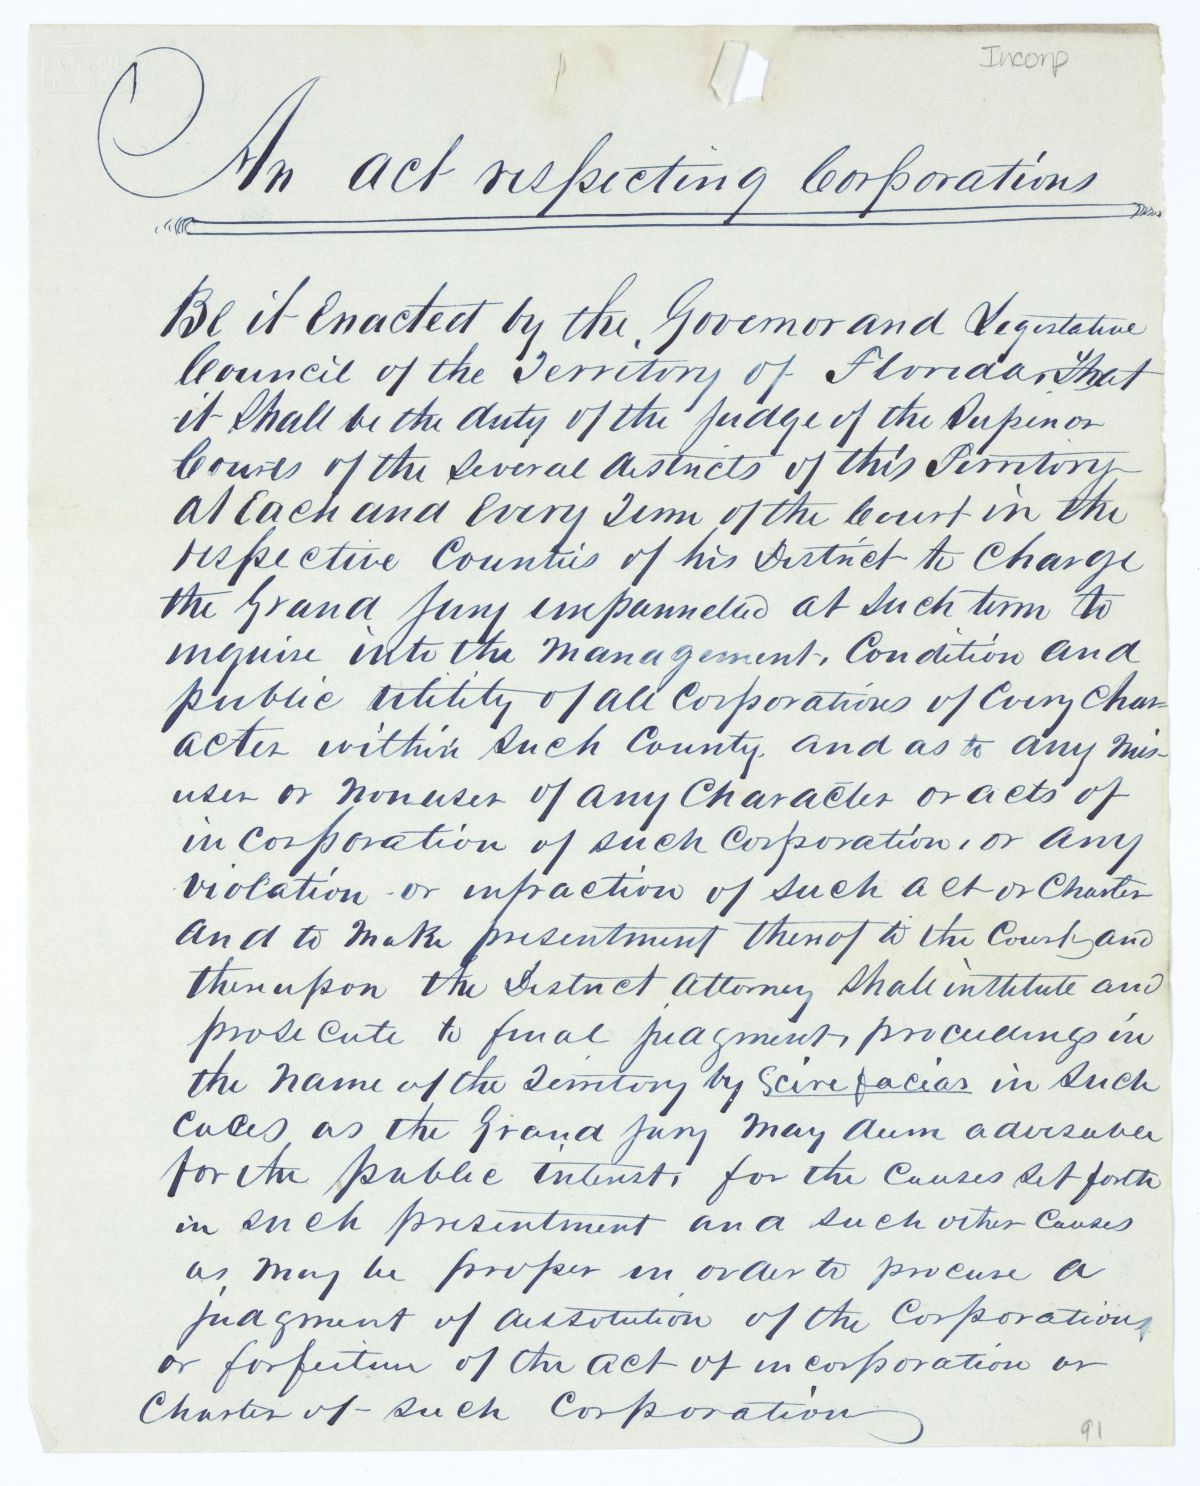 Incorp
An act respecting Corporations
Be it Enacted by the Governor and Legislative
Council of the Territory of Florida, That
it Shall be the duty of the judge of the Superior
Courts of the Several districts of this Territory
at Each and Every Term of the Court in the
respective Counties of his District to Charge
the Grand Jury empannelled at Such term to
inquire into the Management, Condition and
public utility of all Corporations of Every Char-
acter within Such County. and as to any Mis-
user or Nonuser of any Character or acts of
incorporation of such Corporation, or any
violation or infraction of such act or Charter
and to Make presentment thereof to the Court, and
thereupon the District Attorney Shall institute and
prosecute to final judgment, proceedings in
the Name of the Territory by Scire facias in Such
Cases as the Grand Jury May deem advisable
for the public interest, for the Causes set forth
in such presentment and such other Causes
as May be proper in order to procure a
judgment of dissolution of the Corporation,
or forfeiture of the act of incorporation or
Charter of such Corporation
91